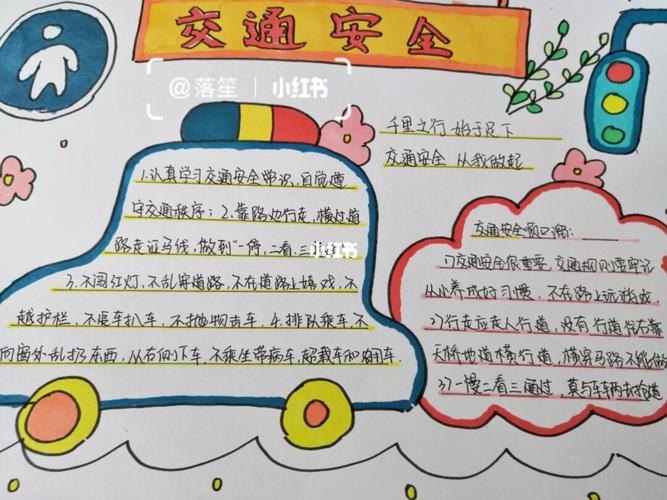 交通安全
@落笙 | 小红书
千里之行 始于足下
交通安全 从我做起
1.认真学习交通安全常识,自觉遵
守交通秩序;2.靠路边行走,横过道
路走斑马线,做到"一停,二看,三
小红书
3.不闯红灯,不乱穿道路,不在道路上嬉戏,不
越护栏,不爬车扒车,不抛物击车,4.排队乘车,不
向窗外乱扔东西,从右侧下车,不乘坐带病车,超载车和
交通安全顺口溜:
(1)交通安全很重要,交通规则要牢记
从小养成好习惯,不在路上玩游戏
(2)行走应走人行道,没有行道往右靠
天桥地道横行道,横穿马路不能做
(3)一慢二看三通过,莫与车辆去抢道